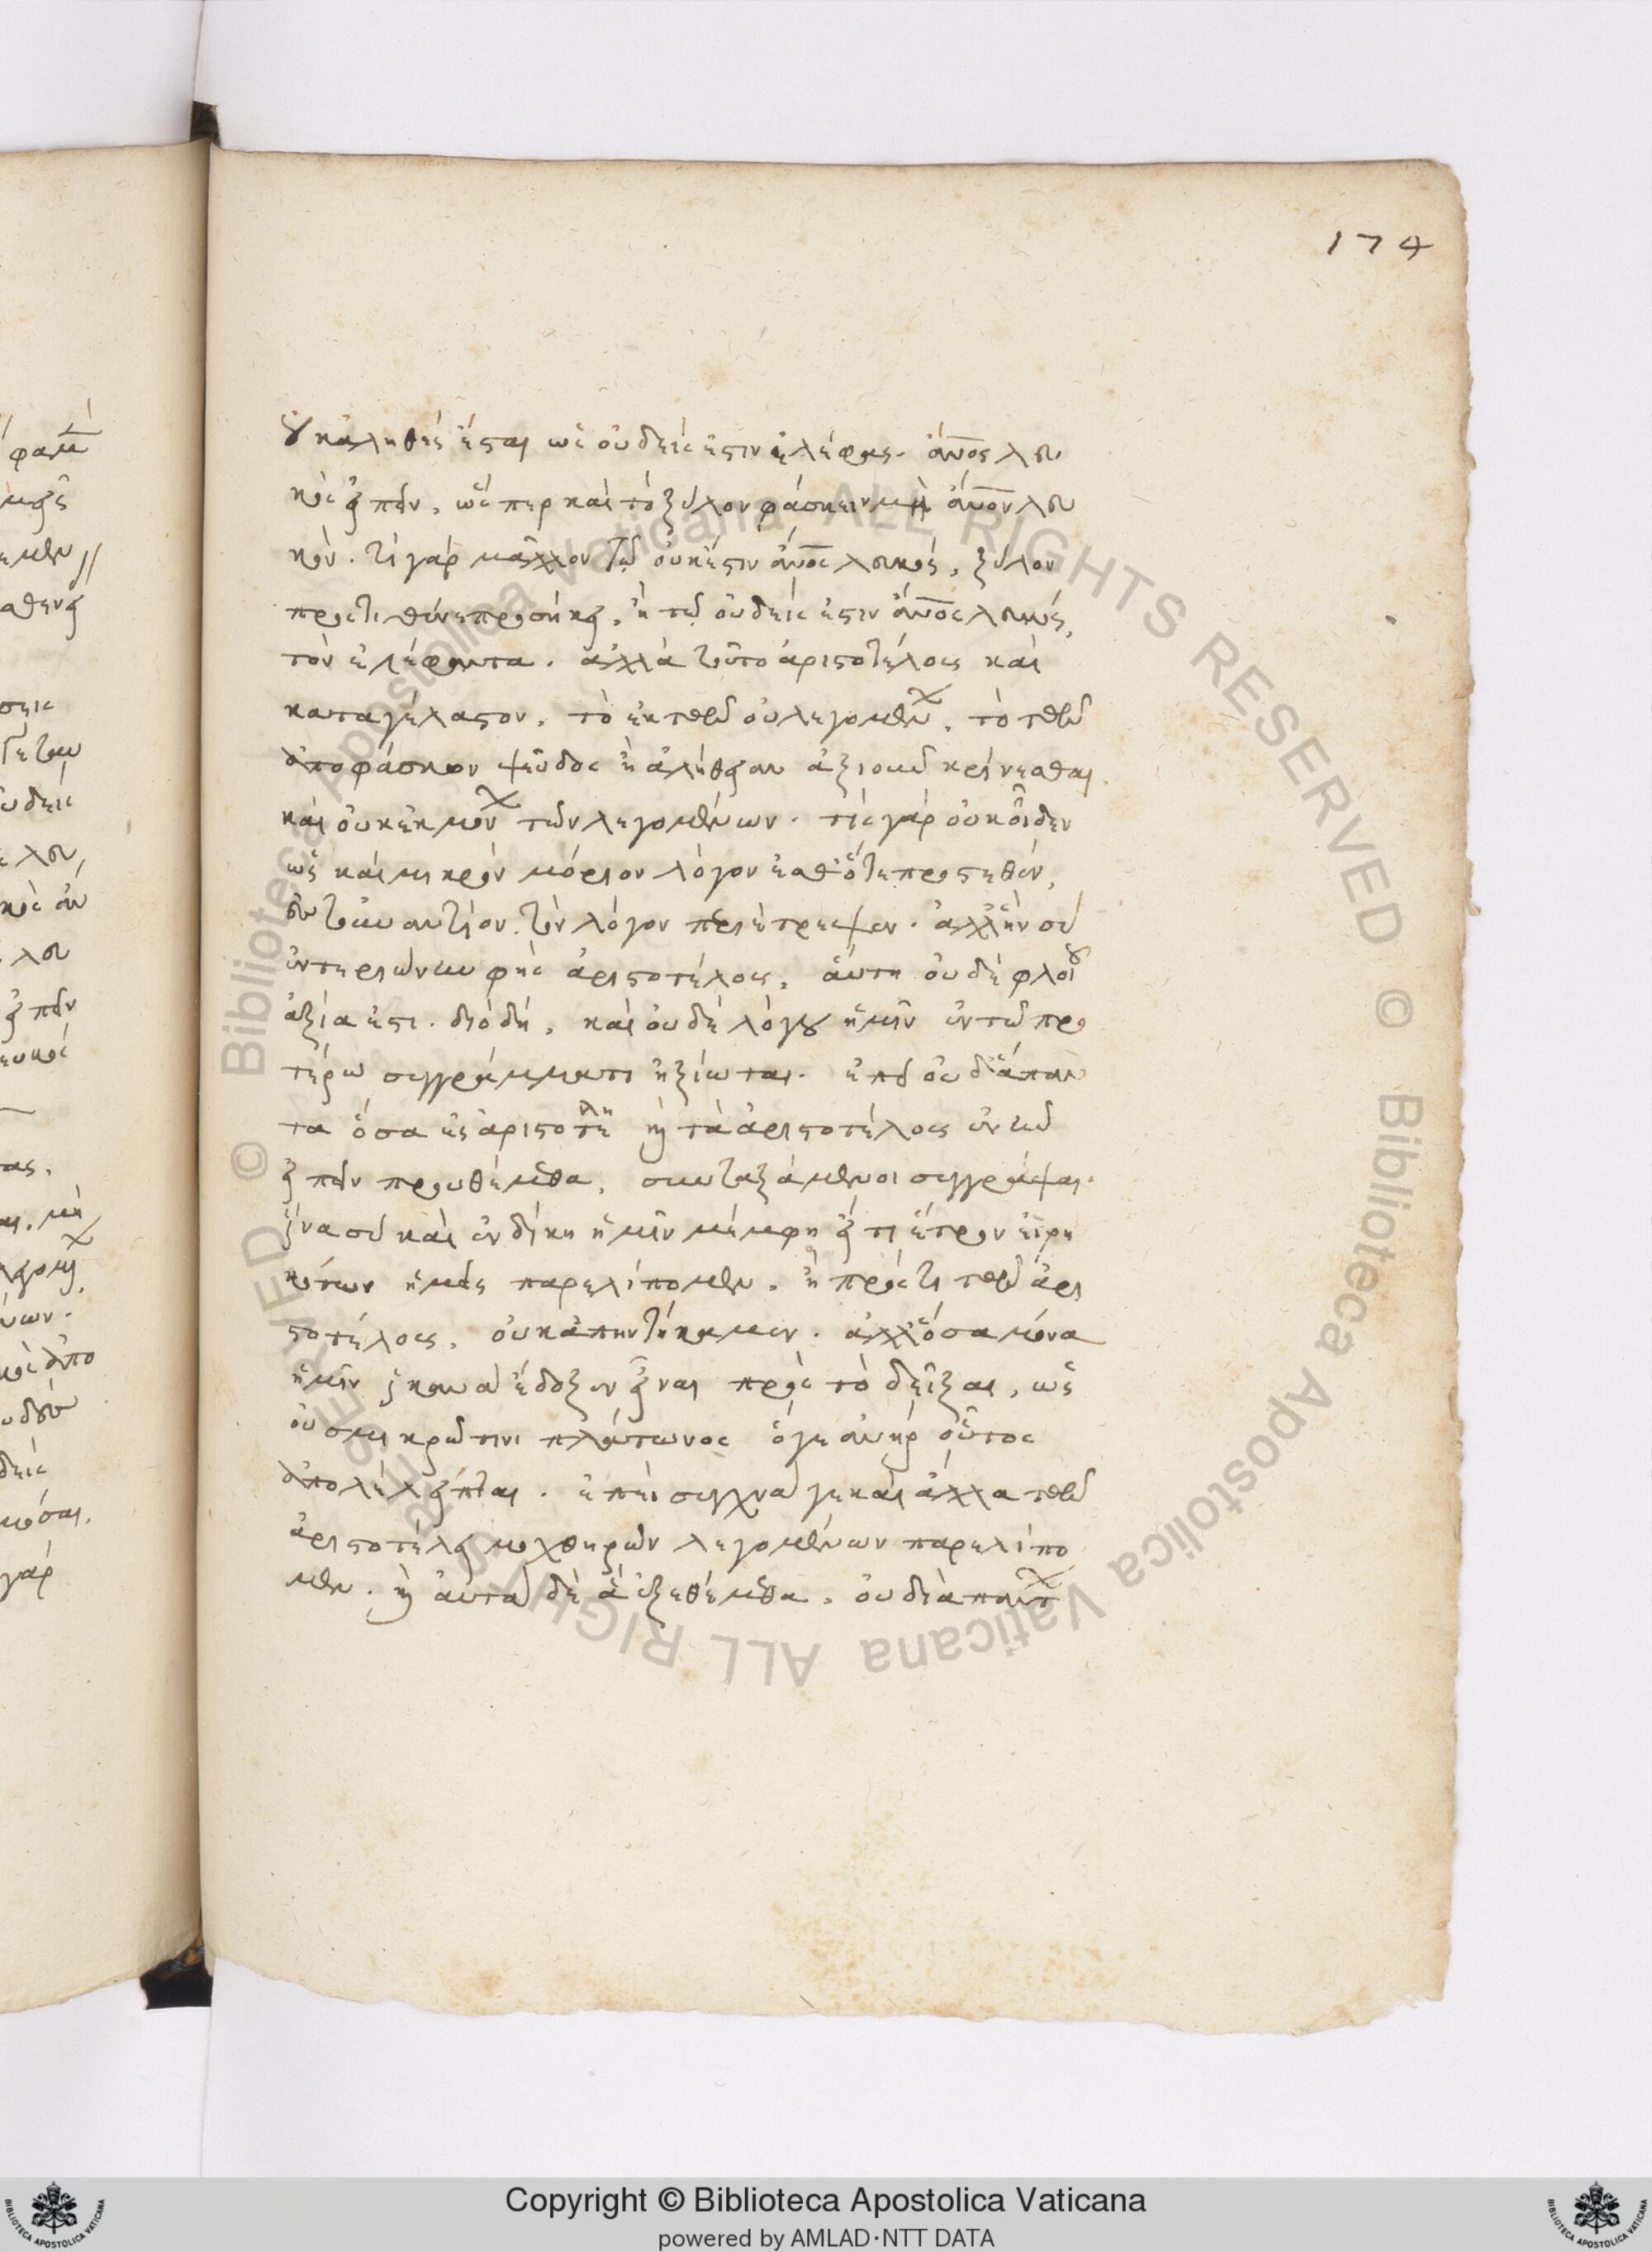 174
οὐκ ἀληθὲς ἔσται ὡς οὐδείς ἐστιν ἐλέφας ἄνος λευ
κὸς εἰπεῖν, ὥσπερ καὶ τὸ ξύλον φάσκειν μὴ ἄνον λευ
κόν. τί γὰρ μᾶλλον τῷ οὐκ ἔστιν ἄνος λευκός, ξύλον
προστιθέναι προσήκει, ἢ τῷ οὐδείς ἐστιν ἄνος λευκός,
τὸν ἐλέφαντα. ἀλλὰ τοῦτο ἀριστοτέλους καὶ
καταγέλαστον, τὸ ἐκ τῶν οὐ λεγομένων, τὸ τῶν
ἀποφάσεων ψεῦδος ἢ ἀλήθειαν ἀξιοῦν κρίνεσθαι
καὶ οὐκ ἐκ μόνων τῶν λεγομένων. τίς γὰρ οὐκ οἶδεν
ὡς καὶ μικρὸν μόριον λόγου ἐσθ' ὅτε προστεθέν,
εἰς τοὐναντίον τὸν λόγον περιέτρεψεν. ἀλλ' ἣν σὺ
ἀριστοτέλους, αὕτη οὐδὲ φλοιοῦ
ἀξία ἐστί. διὸ δὴ, καὶ οὐδὲ λόγου ἡμῖν ἐν τῷ προ
τέρω συγγράμματι ἠξίωται. ἐπεὶ οὐδ' ἅπαν
τα ὅσα ἐς ἀριστοτέλη ἢ τὰ ἀριστοτέλους ἐνῆν
εἰπεῖν προυθέμεθα, συνταξάμενοι συγγράψαι.
ἵνα σὺ καὶ ἐν δίκη ἡμῖν μέμφη εἴ τι ἑτέρων εἰρη
κότων ἡμεῖς παρελίπομεν, ἢ πρός τι τῶν ἀρι
στοτέλους, οὐκ ἀπηντήκαμεν. ἀλλ' ὅσα μόνα
ἡμῖν ἱκανὰ ἔδοξεν εἶναι πρὸς τὸ δεῖξαι, ὡς
οὐ σμικρῷ τινι πλάτωνος ὅ γε ἀνὴρ οὗτος
ἀπολέλειπται. ἐπεὶ συχνά γε καὶ ἄλλα τῶν
ἀριστοτέλει μοχθηρῶν λεγομένων παρελίπο
μεν. καὶ αὐτὰ δὲ ἃ ἐξεθέμεθα, οὐ διὰ πάντων